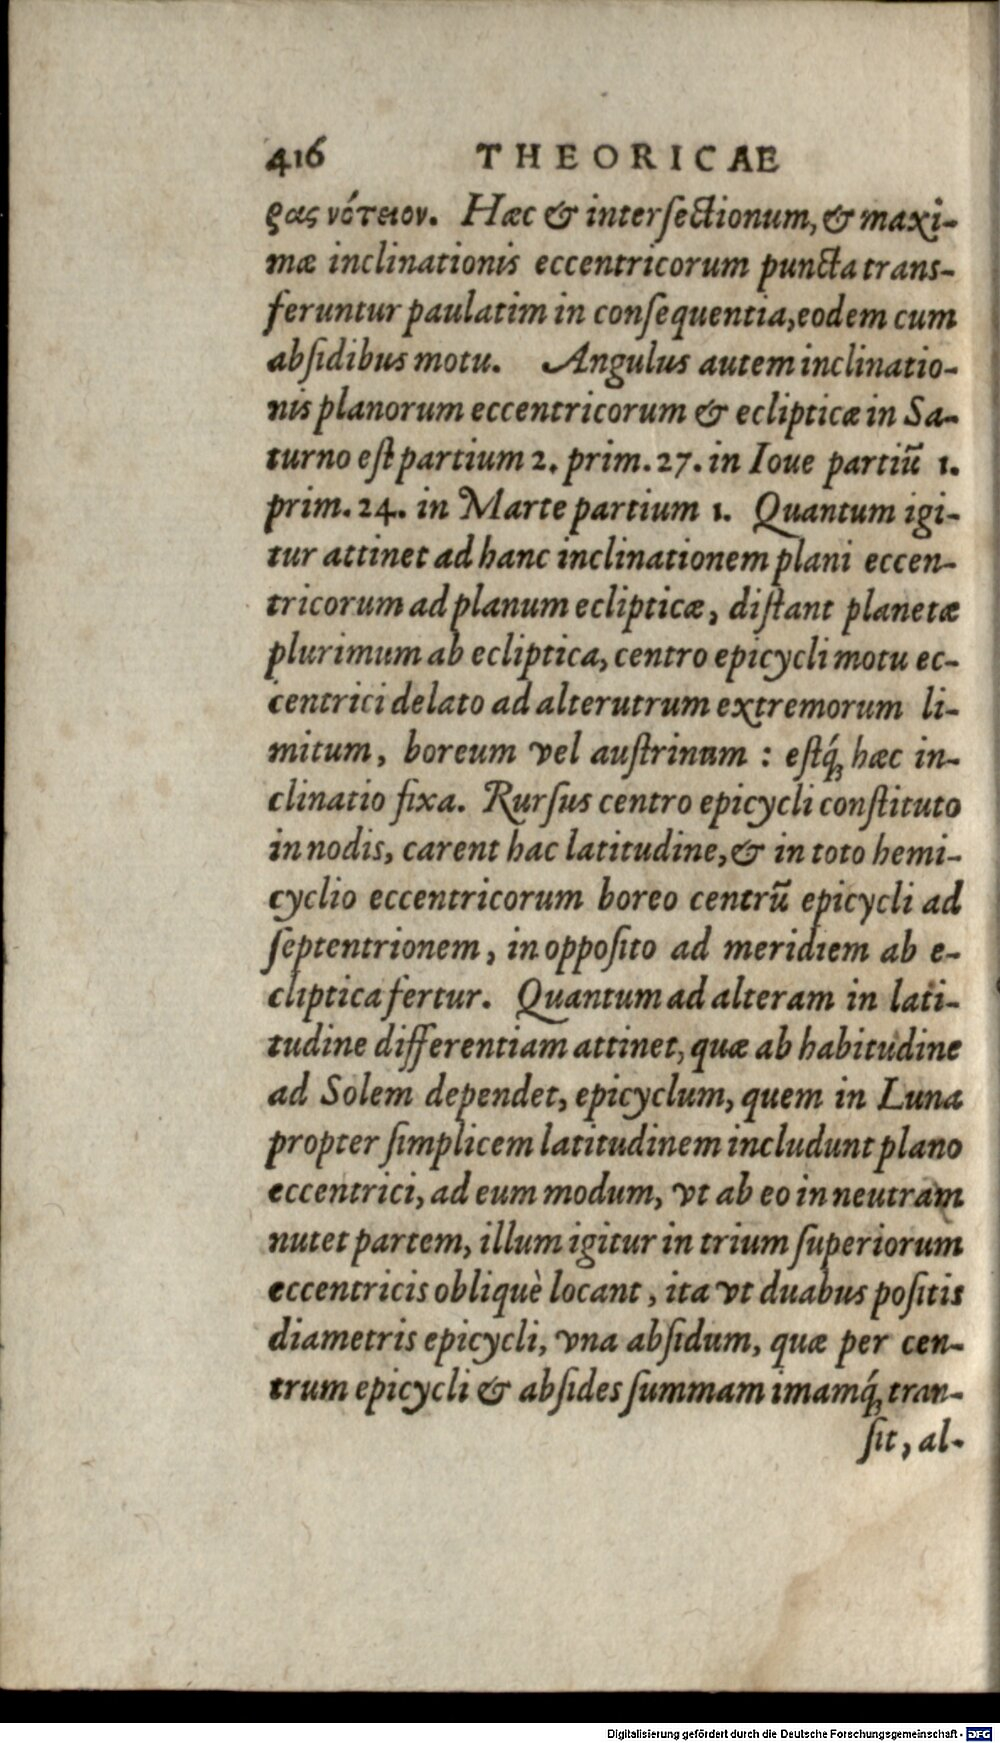 416 THEORICAE
ρας νότειον. Hæc & interſectionum, & maxi-
mæ inclinationis eccentricorum puncta trans-
feruntur paulatim in conſequentia, eodem cum
abſidibus motu. Angulus autem inclinatio-
nis planorum eccentricorum & eclipticæ in Sa-
turno eſt partium 2. prim. 27. in Ioue partiũ 1.
prim. 24. in Marte partium 1. Quantum igi-
tur attinet ad hanc inclinationem plani eccen-
tricorum ad planum eclipticæ, diſtant planetæ
plurimum ab ecliptica, centro epicycli motu ec-
centrici delato ad alterutrum extremorum li-
mitum, boreum vel auſtrinum : eſtq́; hæc in-
clinatio fixa. Rurſus centro epicycli conſtituto
in nodis, carent hac latitudine, & in toto hemi-
cyclio eccentricorum boreo centrũ epicycli ad
ſeptentrionem, in oppoſito ad meridiem ab e-
cliptica fertur. Quantum ad alteram in lati-
tudine differentiam attinet, quæ ab habitudine
ad Solem dependet, epicyclum, quem in Luna
propter ſimplicem latitudinem includunt plano
eccentrici, ad eum modum, vt ab eo in neutram
nutet partem, illum igitur in trium ſuperiorum
eccentricis obliquè locant, ita vt duabus poſitis
diametris epicycli, vna abſidum, quæ per cen-
trum epicycli & abſides ſummam imamq́; tran-
ſit, al-
Digitalisierung gefördert durch die Deutsche Forschungsgemeinschaft - DFG